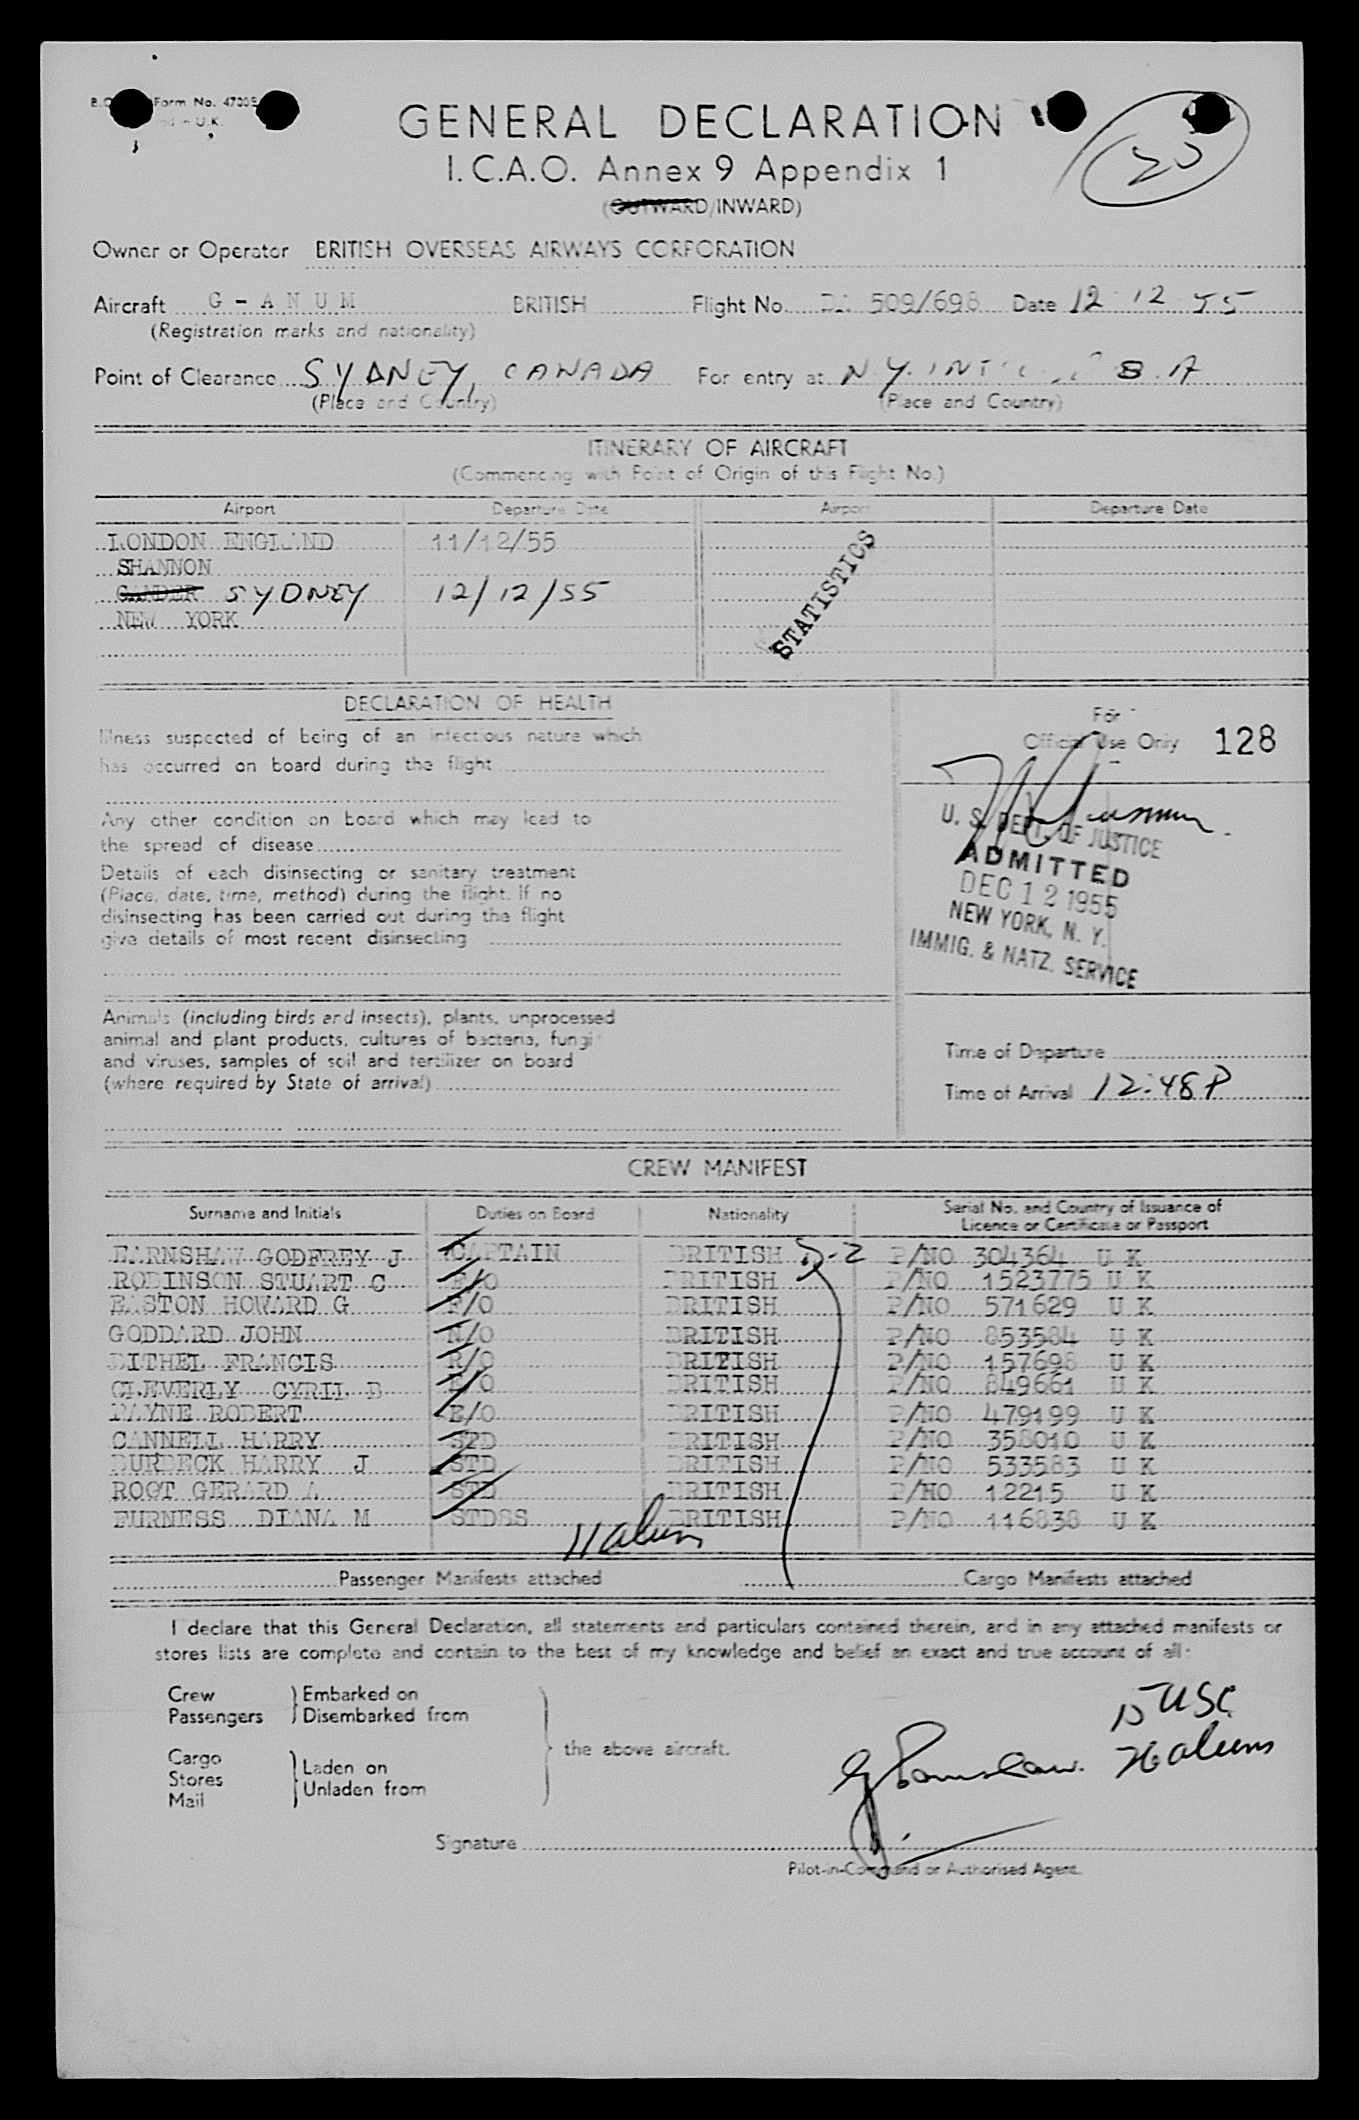 Form No. 4700E
U.K.
GENERAL DECLARATION
I.C.A.O. Annex 9 Appendix 1
(OUTWARD/INWARD)
20
Owner or Operator BRITISH OVERSEAS AIRWAYS CORPORATION
Aircraft G - A N U M BRITISH Flight No. 509/698 Date 12 12 55
(Registration marks and nationality)
Point of Clearance SYDNEY, CANADA For entry at N.Y. INT
(Place and Country) (Place and Country)
ITINERARY OF AIRCRAFT
(Commencing with Point of Origin of this Flight No.)
Airport Departure Date Airport Departure Date
LONDON ENGLAND 11/12/55
SHANNON
GANDER SYDNEY 12/12/55
NEW YORK
STATISTICS
DECLARATION OF HEALTH
Illness suspected of being of an infectious nature which
has occurred on board during the flight
Any other condition on board which may lead to
the spread of disease
Details of each disinsecting or sanitary treatment
(Place, date, time, method) during the flight. If no
disinsecting has been carried out during the flight
give details of most recent disinsecting
For
Official Use Only 128
U. S. DEPT. OF JUSTICE
ADMITTED
DEC 12 1955
NEW YORK, N. Y.
IMMIG. & NATZ. SERVICE
Animals (including birds and insects), plants, unprocessed
animal and plant products, cultures of bacteria, fungi
and viruses, samples of soil and fertilizer on board
(where required by State of arrival)
Time of Departure
Time of Arrival 12:48P
CREW MANIFEST
Surname and Initials Duties on Board Nationality Serial No. and Country of Issuance of
Licence or Certificate or Passport
EARNSHAW GODFREY J CAPTAIN BRITISH D-2 P/NO 304364 U K
ROBINSON STUART C F/O BRITISH P/NO 1523775 U K
EASTON HOWARD G F/O BRITISH P/NO 571629 U K
GODDARD JOHN N/O BRITISH P/NO 853584 U K
BITHEL FRANCIS R/O BRITISH P/NO 157698 U K
CLEVERLY CYRIL B E/O BRITISH P/NO 849661 U K
PAYNE ROBERT E/O BRITISH P/NO 479199 U K
CANNELL HARRY STD BRITISH P/NO 358010 U K
BURBECK HARRY J STD BRITISH P/NO 533583 U K
ROOT GERARD A STD BRITISH P/NO 12215 U K
FURNESS DIANA M STDSS BRITISH P/NO 116838 U K
Passenger Manifests attached Cargo Manifests attached
I declare that this General Declaration, all statements and particulars contained therein, and in any attached manifests or
stores lists are complete and contain to the best of my knowledge and belief an exact and true account of all:
Crew } Embarked on
Passengers } Disembarked from
the above aircraft.
Cargo
Stores } Laden on
Mail } Unladen from
15 USC
11 aliens
G Earnshaw.
Signature
Pilot-in-Command or Authorised Agent.